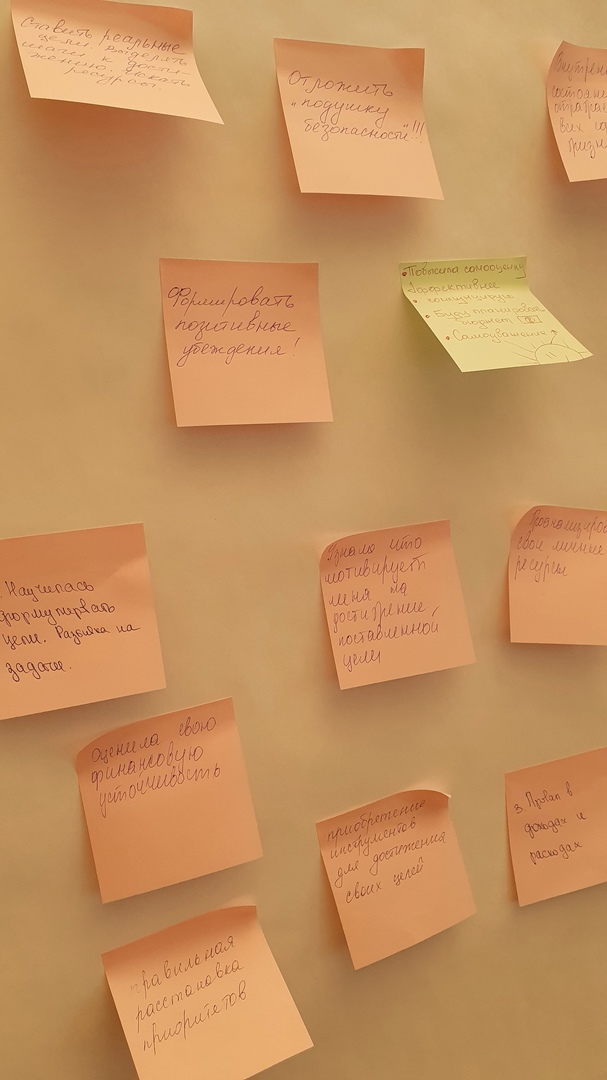 Ставить реальные
цели, выделять
шаги к дости-
жению, искать
ресурсы
Отложить
"подушку
безопасности"!!!
Внутрен
состояни
всех
Формировать
позитивные
убеждения!
• Повысила самооценку
Эффективнее
• коммуницирую
• Буду планировать
бюджет
• Самоуважение
Научилась
формулировать
цели. Разбивка на
задачи.
Узнала что
мотивирует
меня на
достижение
поставленной
цели
Проанализиров
свои личные
ресурсы
Оценила свою
финансовую
устойчивость
приобретение
инструментов
для достижения
своих целей
3. Провал в
доходах и
расходах
правильная
расстановка
приоритетов